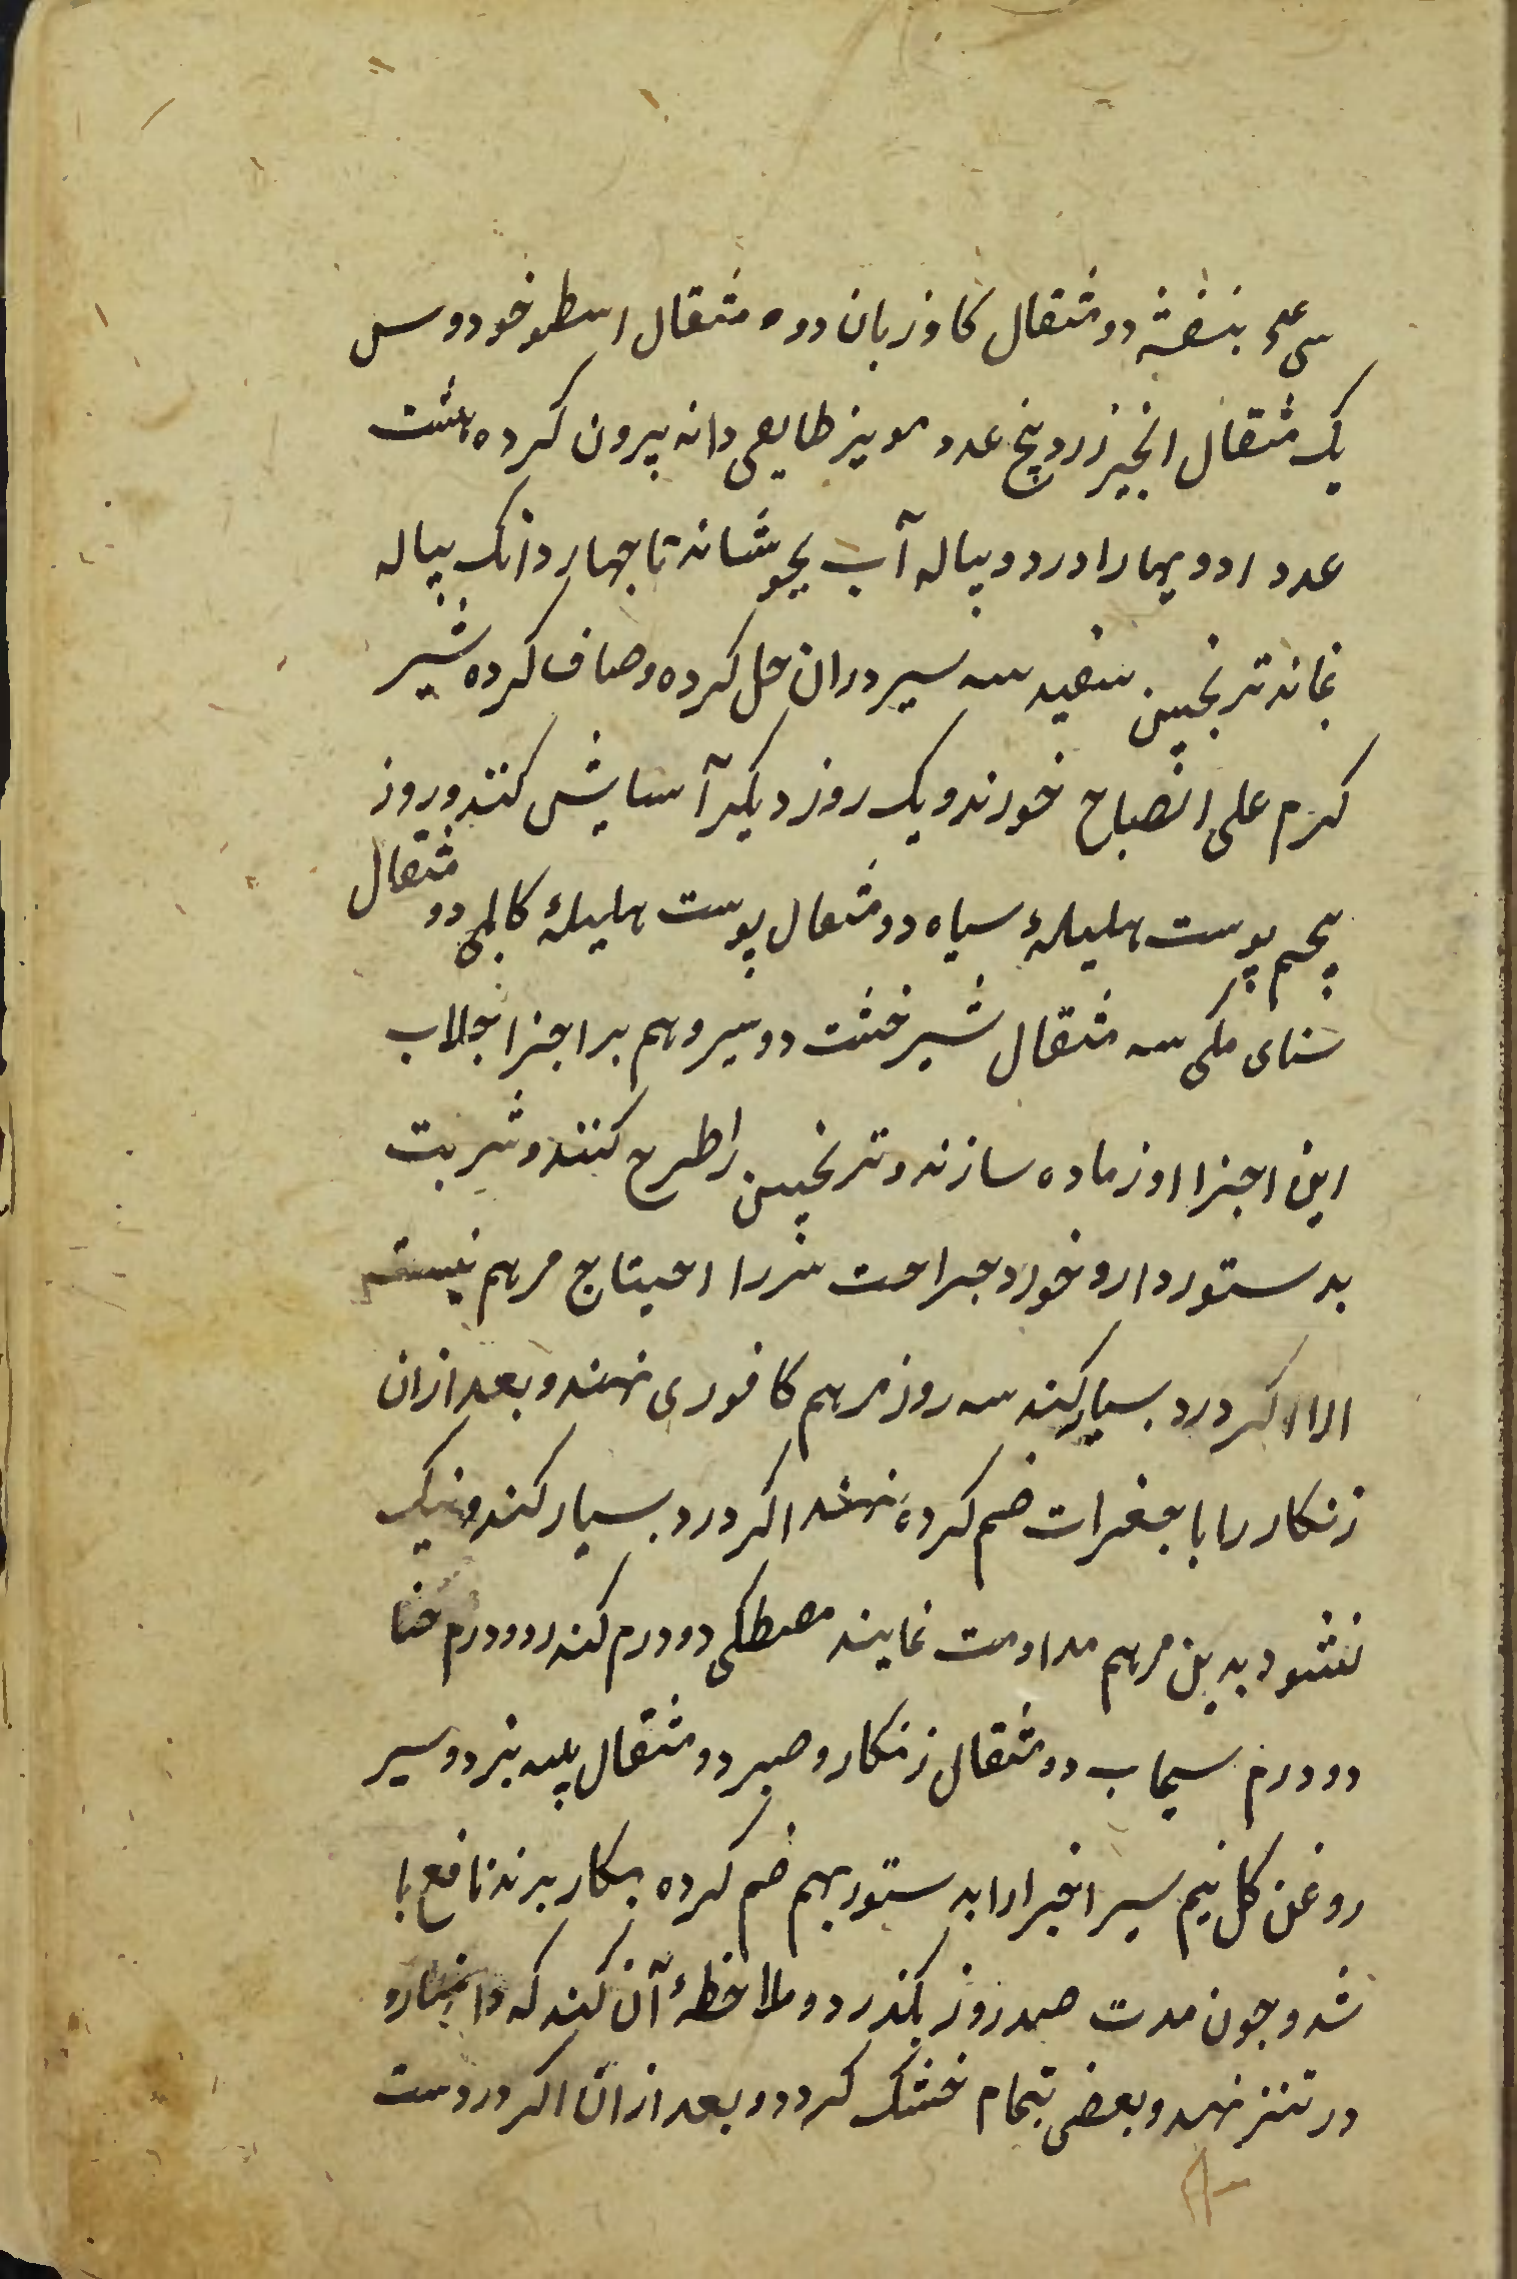 سی عدد بنفشه دو مثقال کاوزبان دوه مثقال اسطوخودوس
یک مثقال انجیر زرد پنج عدد مویز طایفی دانه بیرون کرده هشت
عدد ادویها را در دو پیاله آب بجوشاند تا چهار دانک پیاله
بماند ترنجبین سفید سه سیر در ان حل کرده و صاف کرده شیر
کرم علی الصباح خورند و یک روز دیکر آسایش کنند و روز
پنجم پوست هلیلهٔ سیاه دو مثقال پوست هلیلهٔ کابلی دو مثقال
سنای مکی سه مثقال شیرخشت دو سیر و هم بر اجزا جلاب
این اجزا او زماده سازند و ترنجبین را طرح کنند و شربت
بدستور دارو خورد جراحت سر را احتیاج مرهم نیست
الا اکر درد بسیار کند سه روز مرهم کافوری نهند و بعد ازان
زنکار را با جغرات ضم کرده نهند اکر درد بسیار کند و نیک
نشود بدین مرهم مداومت نمایند مصطکی دو درم کندر دو درم حنا
دو درم سیماب دو مثقال زنکار و صبر دو مثقال پیه بز دو سیر
روغن کل نیم سیر اخیرا را بدستور بهم ضم کرده بکار برند نافع با
شد و چون مدت صد روز بکذرد و ملاحظهٔ آن کند که دا
در تنز نهد و بعضی بتمام خشک کردد و بعد ازان اکر در دست